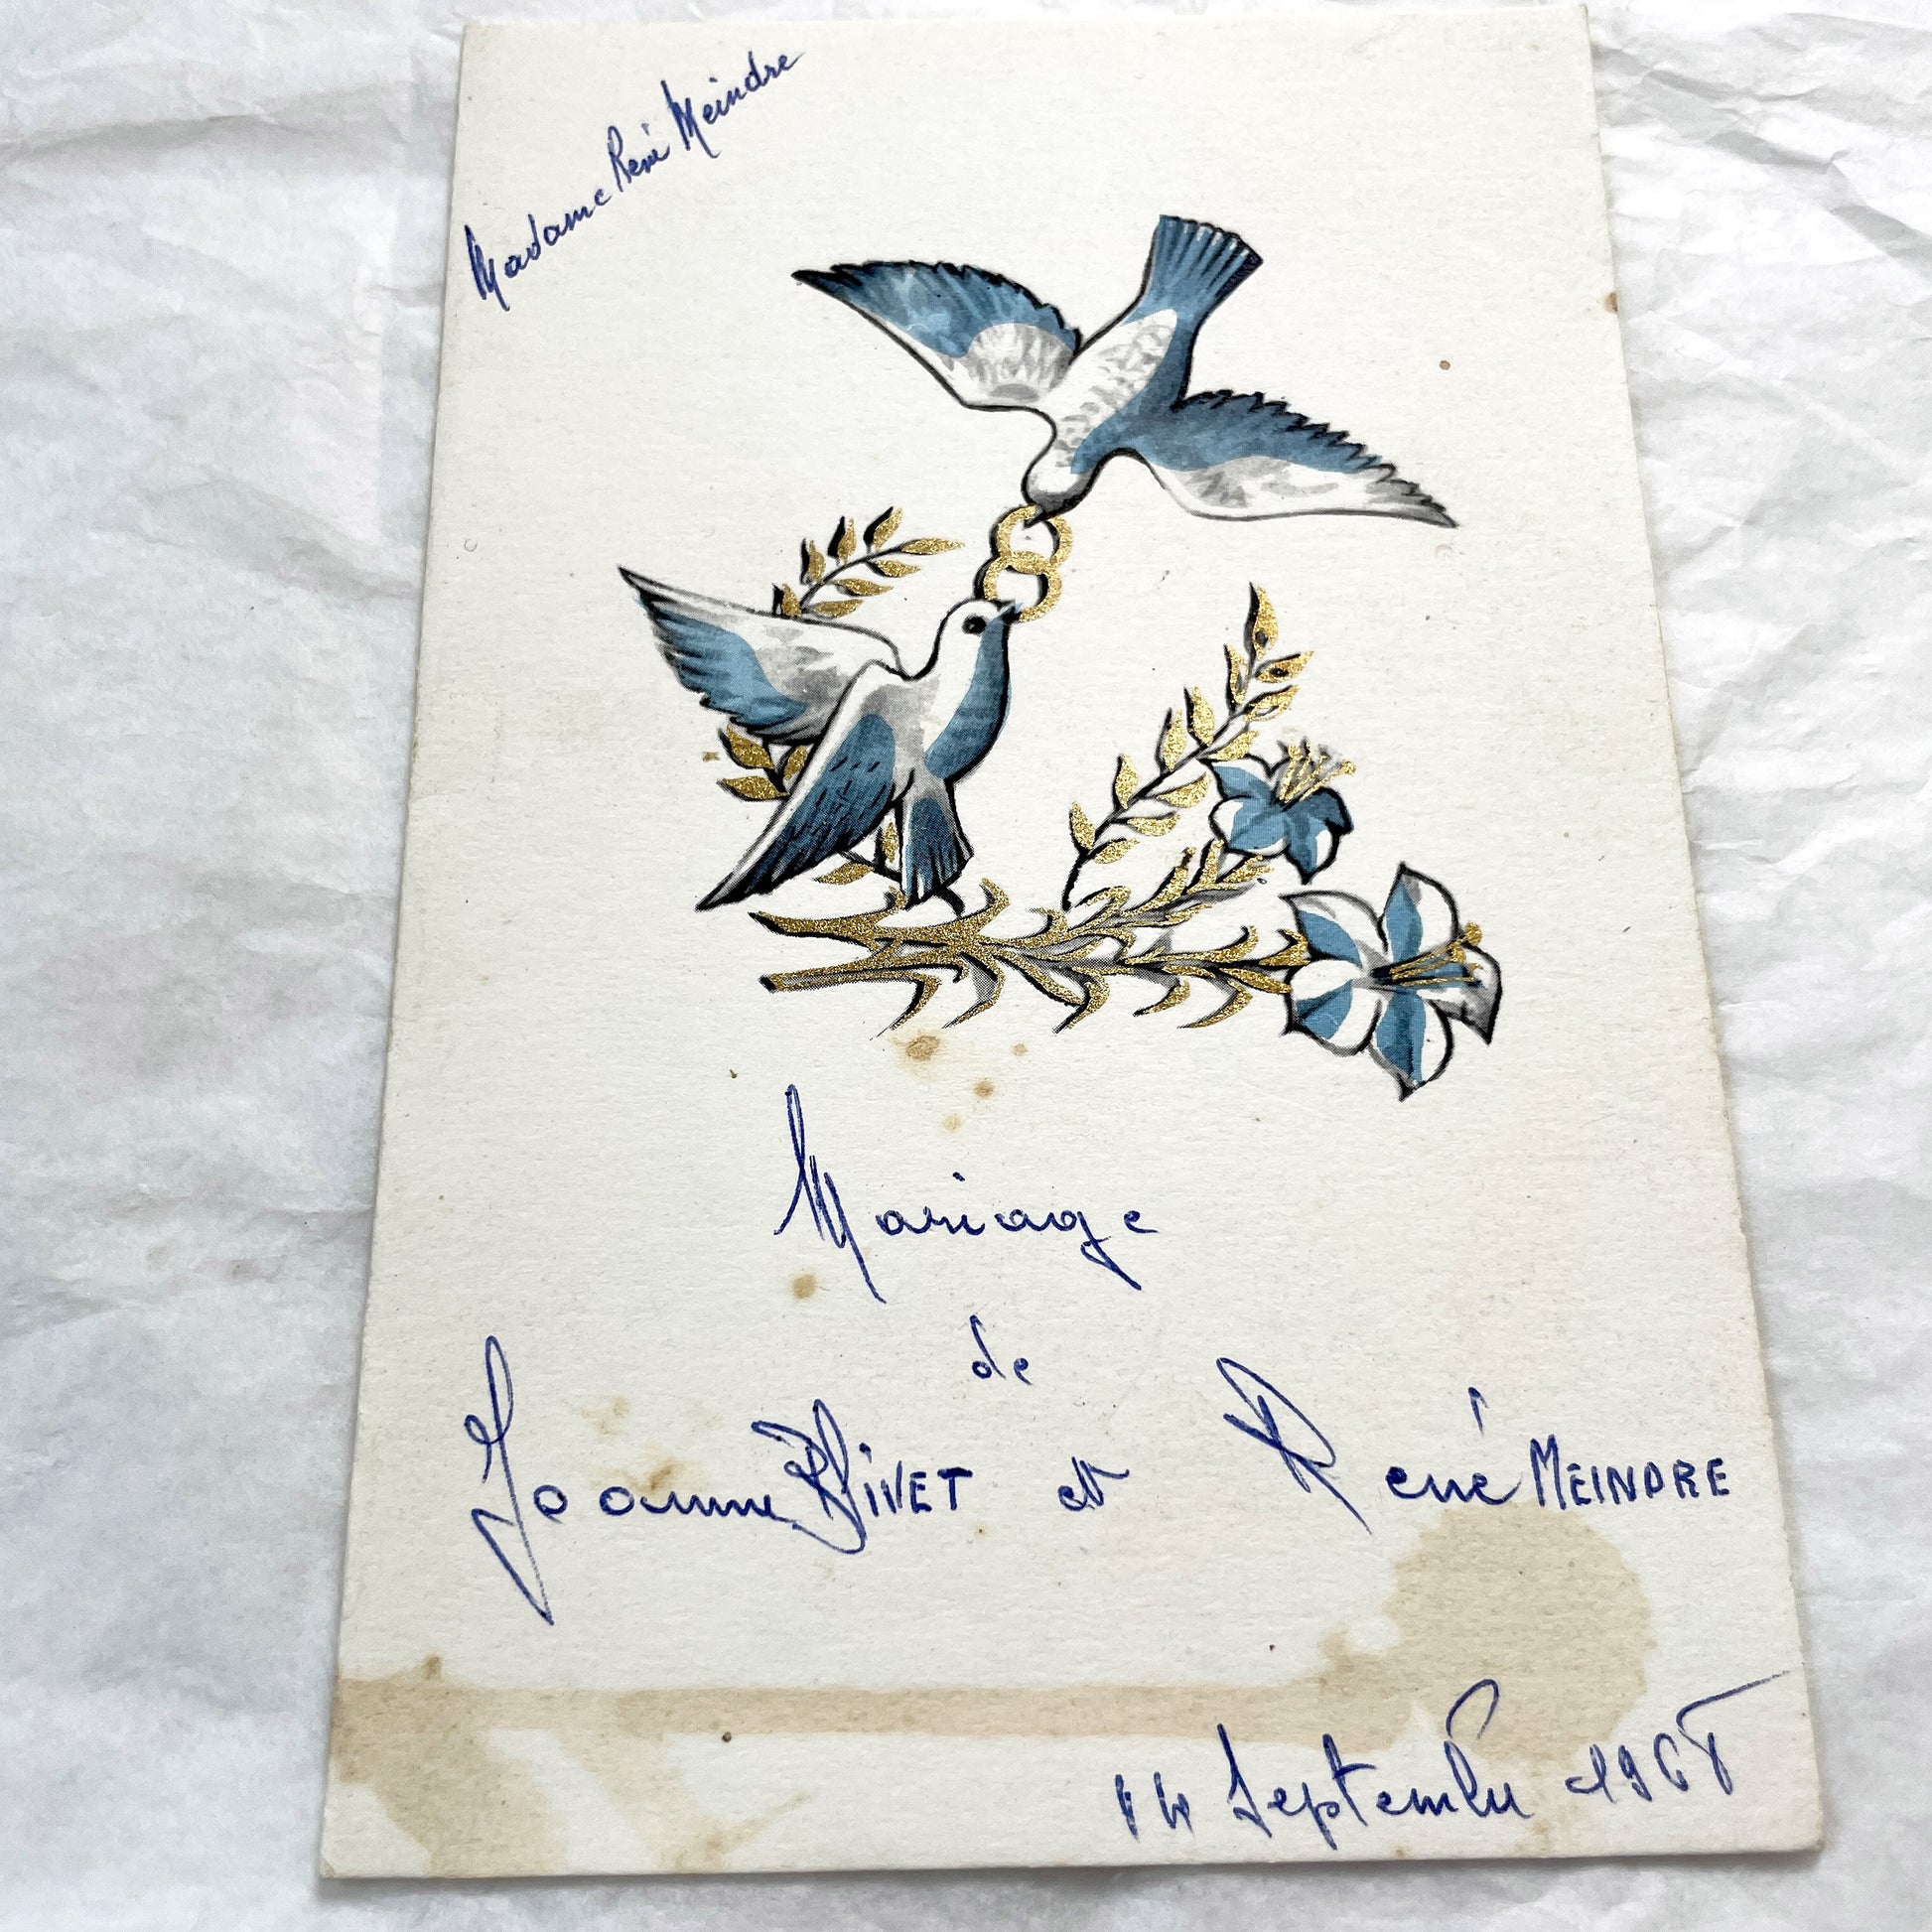 Madame René Meindre
Mariage
de
Joanne RIVET et René MEINDRE
14 Septembre 1968